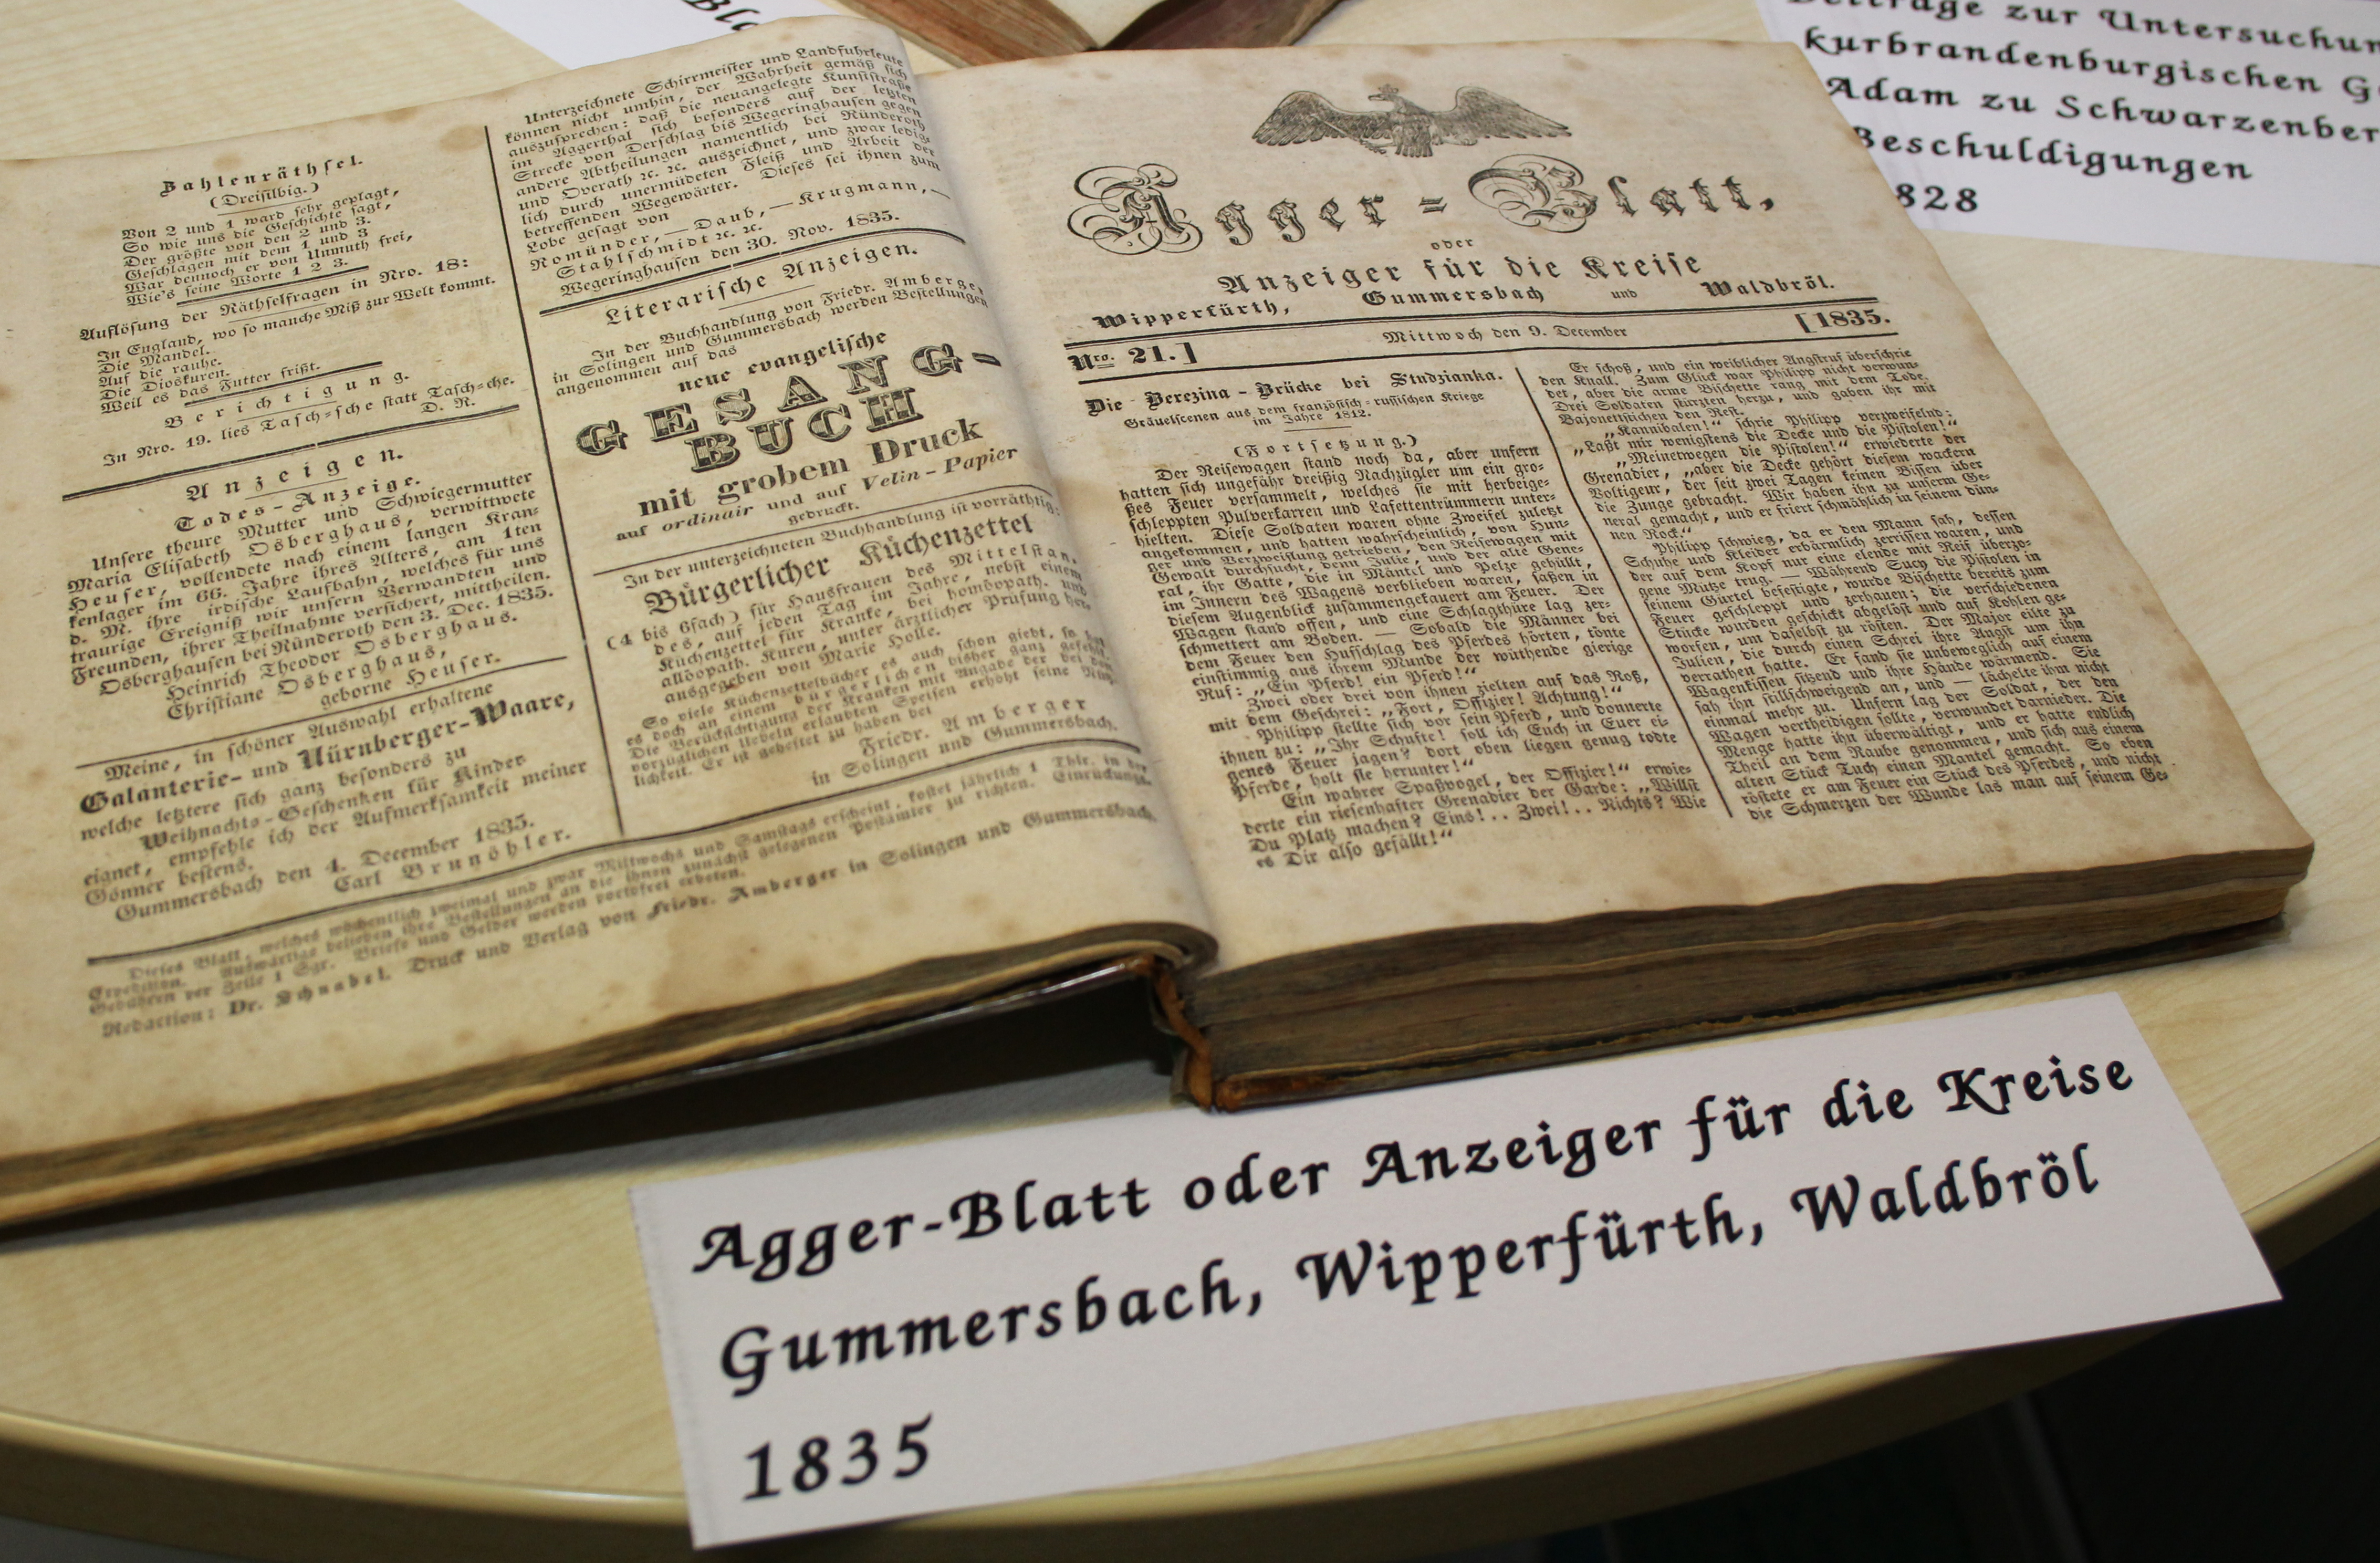 Zahlenräthsel.
(Dreisilbig.)
Von 2 und 1 ward sehr geplagt,
So wie uns die Geschichte sagt,
Der größte von den 2 und 3.
Geschlagen mit dem 1 und 3
War dennoch er von Unmuth frei,
Wie's seine Worte 1 2 3.
Auflösung der Räthselfragen in Nro. 18:
In England, wo so manche Miß zur Welt kommt.
Die Mandel.
Auf die rauhe.
Die Dioskuren.
Weil es das Futter frißt.
Berichtigung.
In Nro. 19. lies Tasch=sche statt Tasch=che.
D. R.
Anzeigen.
Todes-Anzeige.
Unsere theure Mutter und Schwiegermutter
Maria Elisabeth Osberghaus, verwittwete
Heuser, vollendete nach einem langen Kran-
kenlager im 66. Jahre ihres Alters, am 1ten
d. M. ihre irdische Laufbahn, welches für uns
traurige Ereigniß wir unsern Verwandten und
Freunden, ihrer Theilnahme versichert, mittheilen.
Osberghausen bei Ründeroth den 3. Dec. 1835.
Heinrich Theodor Osberghaus.
Christiane Osberghaus,
geborne Heuser.
Meine, in schöner Auswahl erhaltene
Galanterie- und Nürnberger-Waare,
welche letztere sich ganz besonders zu
Weihnachts-Geschenken für Kinder
eignet, empfehle ich der Aufmerksamkeit meiner
Gönner bestens.
Gummersbach den 4. December 1835.
Carl Brunöhler.
Unterzeichnete Schirrmeister und Landfuhrleute
können nicht umhin, der Wahrheit gemäß sich
auszusprechen: daß die neuangelegte Kunststraße
im Aggerthal sich besonders auf der letzten
Strecke von Derschlag bis Wegeringhausen gegen
andere Abtheilungen namentlich bei Ründeroth
und Overath ꝛc. ꝛc. auszeichnet, und zwar ledig-
lich durch unermüdeten Fleiß und Arbeit der
betreffenden Wegewärter. Dieses sei ihnen zum
Lobe gesagt von
Romünder, — Daub, — Krugmann, —
Stahlschmidt ꝛc. ꝛc.
Wegeringhausen den 30. Nov. 1835.
Literarische Anzeigen.
In der Buchhandlung von Friedr. Amberger
in Solingen und Gummersbach werden Bestellungen
angenommen auf das
neue evangelische
GESANG-
BUCH
mit grobem Druck
auf ordinair und auf Velin-Papier
gedruckt.
In der unterzeichneten Buchhandlung ist vorräthig:
Bürgerlicher Küchenzettel
(4 bis 6fach) für Hausfrauen des Mittelstan-
des, auf jeden Tag im Jahre, nebst einem
Küchenzettel für Kranke, bei homöopath. und
allöopath. Kuren, unter ärztlicher Prüfung her-
ausgegeben von Marie Holle.
So viele Küchenzettelbücher es auch schon giebt, so
es doch an einem bürgerlichen bisher ganz gefehlt
Die Berücksichtigung der Kranken mit Angabe der bei den
vorzüglichen Uebeln erlaubten Speisen erhöht seine
lichkeit. Er ist geheftet zu haben bei
Friedr. Amberger
in Solingen und Gummersbach.
Dieses Blatt, welches wöchentlich zweimal und zwar Mittwochs und Samstags erscheint, kostet jährlich 1 Thlr. in der
Expedition. Auswärtige belieben ihre Bestellungen an die ihnen zunächst gelegenen Postämter zu richten. Einrückungs-
Gebühren per Zeile 1 Sgr. Briefe und Gelder werden portofrei erbeten.
Redaction: Dr. Schnabel. Druck und Verlag von Friedr. Amberger in Solingen und Gummersbach.
Agger=Blatt,
oder
Anzeiger für die Kreise
Wipperfürth, Gummersbach und Waldbröl.
Nro. 21.] Mittwoch den 9. December [1835.
Die Berezina-Brücke bei Studzianka.
Gräuelscenen aus dem französisch-russischen Kriege
im Jahre 1812.
(Fortsetzung.)
Der Reisewagen stand noch da, aber unsern
hatten sich ungefähr dreißig Nachzügler um ein gro-
ßes Feuer versammelt, welches sie mit herbeige-
schleppten Pulverkarren und Lafettentrümmern unter-
hielten. Diese Soldaten waren ohne Zweifel zuletzt
angekommen, und hatten wahrscheinlich, von Hun-
ger und Verzweiflung getrieben, den Reisewagen mit
Gewalt durchsucht, denn Julie, und der alte Gene-
ral, ihr Gatte, die in Mäntel und Pelze gehüllt,
im Innern des Wagens verblieben waren, saßen in
diesem Augenblick zusammengekauert am Feuer. Der
Wagen stand offen, und eine Schlagthüre lag zer-
schmettert am Boden. — Sobald die Männer bei
dem Feuer den Hufschlag des Pferdes hörten, tönte
einstimmig aus ihrem Munde der wüthende gierige
Ruf: „Ein Pferd! ein Pferd!“
Zwei oder drei von ihnen zielten auf das Roß,
mit dem Geschrei: „Fort, Offizier! Achtung!“
Philipp stellte sich vor sein Pferd, und donnerte
ihnen zu: „Ihr Schufte! soll ich Euch in Euer ei-
genes Feuer jagen? dort oben liegen genug todte
Pferde, holt sie herunter!“
Ein wahrer Spaßvogel, der Offizier!“ erwie-
derte ein riesenhafter Grenadier der Garde: „Willst
Du Platz machen? Eins!.. Zwei!.. Nichts? Wie
es Dir also gefällt!“
Er schoß, und ein weiblicher Angstruf überschrie
den Knall. Zum Glück war Philipp nicht verwun-
det, aber die arme Bischette rang mit dem Tode.
Drei Soldaten stürzten herzu, und gaben ihr mit
Bajonetstichen den Rest.
„Kannibalen!“ schrie Philipp verzweifelnd:
„Laßt mir wenigstens die Decke und die Pistolen!“
„Meinetwegen die Pistolen!“ erwiederte der
Grenadier, „aber die Decke gehört diesem wackern
Voltigeur, der seit zwei Tagen keinen Bissen über
die Zunge gebracht. Wir haben ihn zu unserm Ge-
neral gemacht, und er friert schmählich in seinem dün-
nen Rock.“
Philipp schwieg, da er den Mann sah, dessen
Schuhe und Kleider erbärmlich zerrissen waren, und
der auf dem Kopf nur eine elende mit Reif überzo-
gene Mütze trug. — Während Sucy die Pistolen in
seinem Gürtel befestigte, wurde Bischette bereits zum
Feuer geschleppt und zerhauen; die verschiedenen
Stücke wurden geschickt abgelöst und auf Kohlen ge-
worfen, um daselbst zu rösten. Der Major eilte zu
Julien, die durch einen Schrei ihre Angst um ihn
verrathen hatte. Er fand sie unbeweglich auf einem
Wagenkissen sitzend und ihre Hände wärmend. Sie
sah ihn stillschweigend an, und — lächelte ihm nicht
einmal mehr zu. Unfern lag der Soldat, der den
Wagen vertheidigen sollte, verwundet darnieder. Die
Menge hatte ihn überwältigt, und er hatte endlich
Theil an dem Raube genommen, und sich aus einem
alten Stück Tuch einen Mantel gemacht. So eben
röstete er am Feuer ein Stück des Pferdes, und nicht
die Schmerzen der Wunde las man auf seinem Ge-
zur Untersuchun
kurbrandenburgischen G
Adam zu Schwarzenber
Beschuldigungen
828
Agger-Blatt oder Anzeiger für die Kreise
Gummersbach, Wipperfürth, Waldbröl
1835